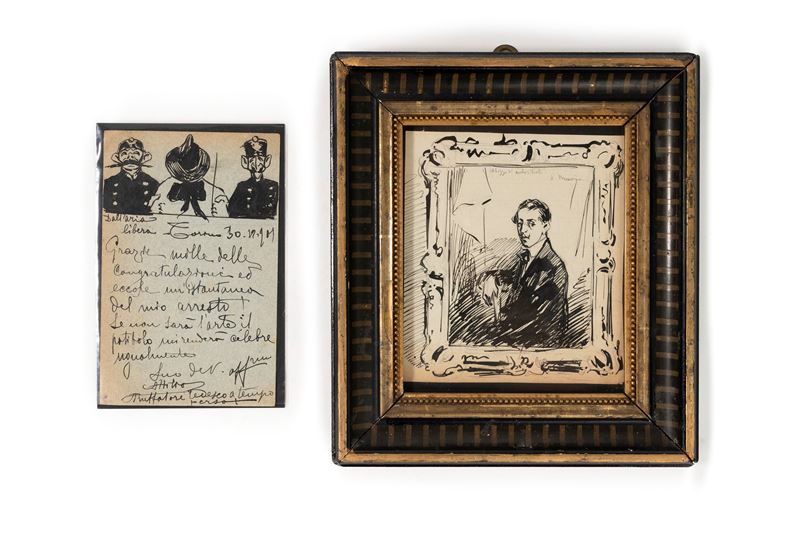 Dall'aria
libera Torino 30.
Grazie mille delle
congratulazioni ed
eccole un'istantanea
del mio arresto!
Se non sarà l'arte il
patibolo mi renderà celebre
ugualmente
Suo dev. aff
Attilio
truffatore tedesco a tempo
perso